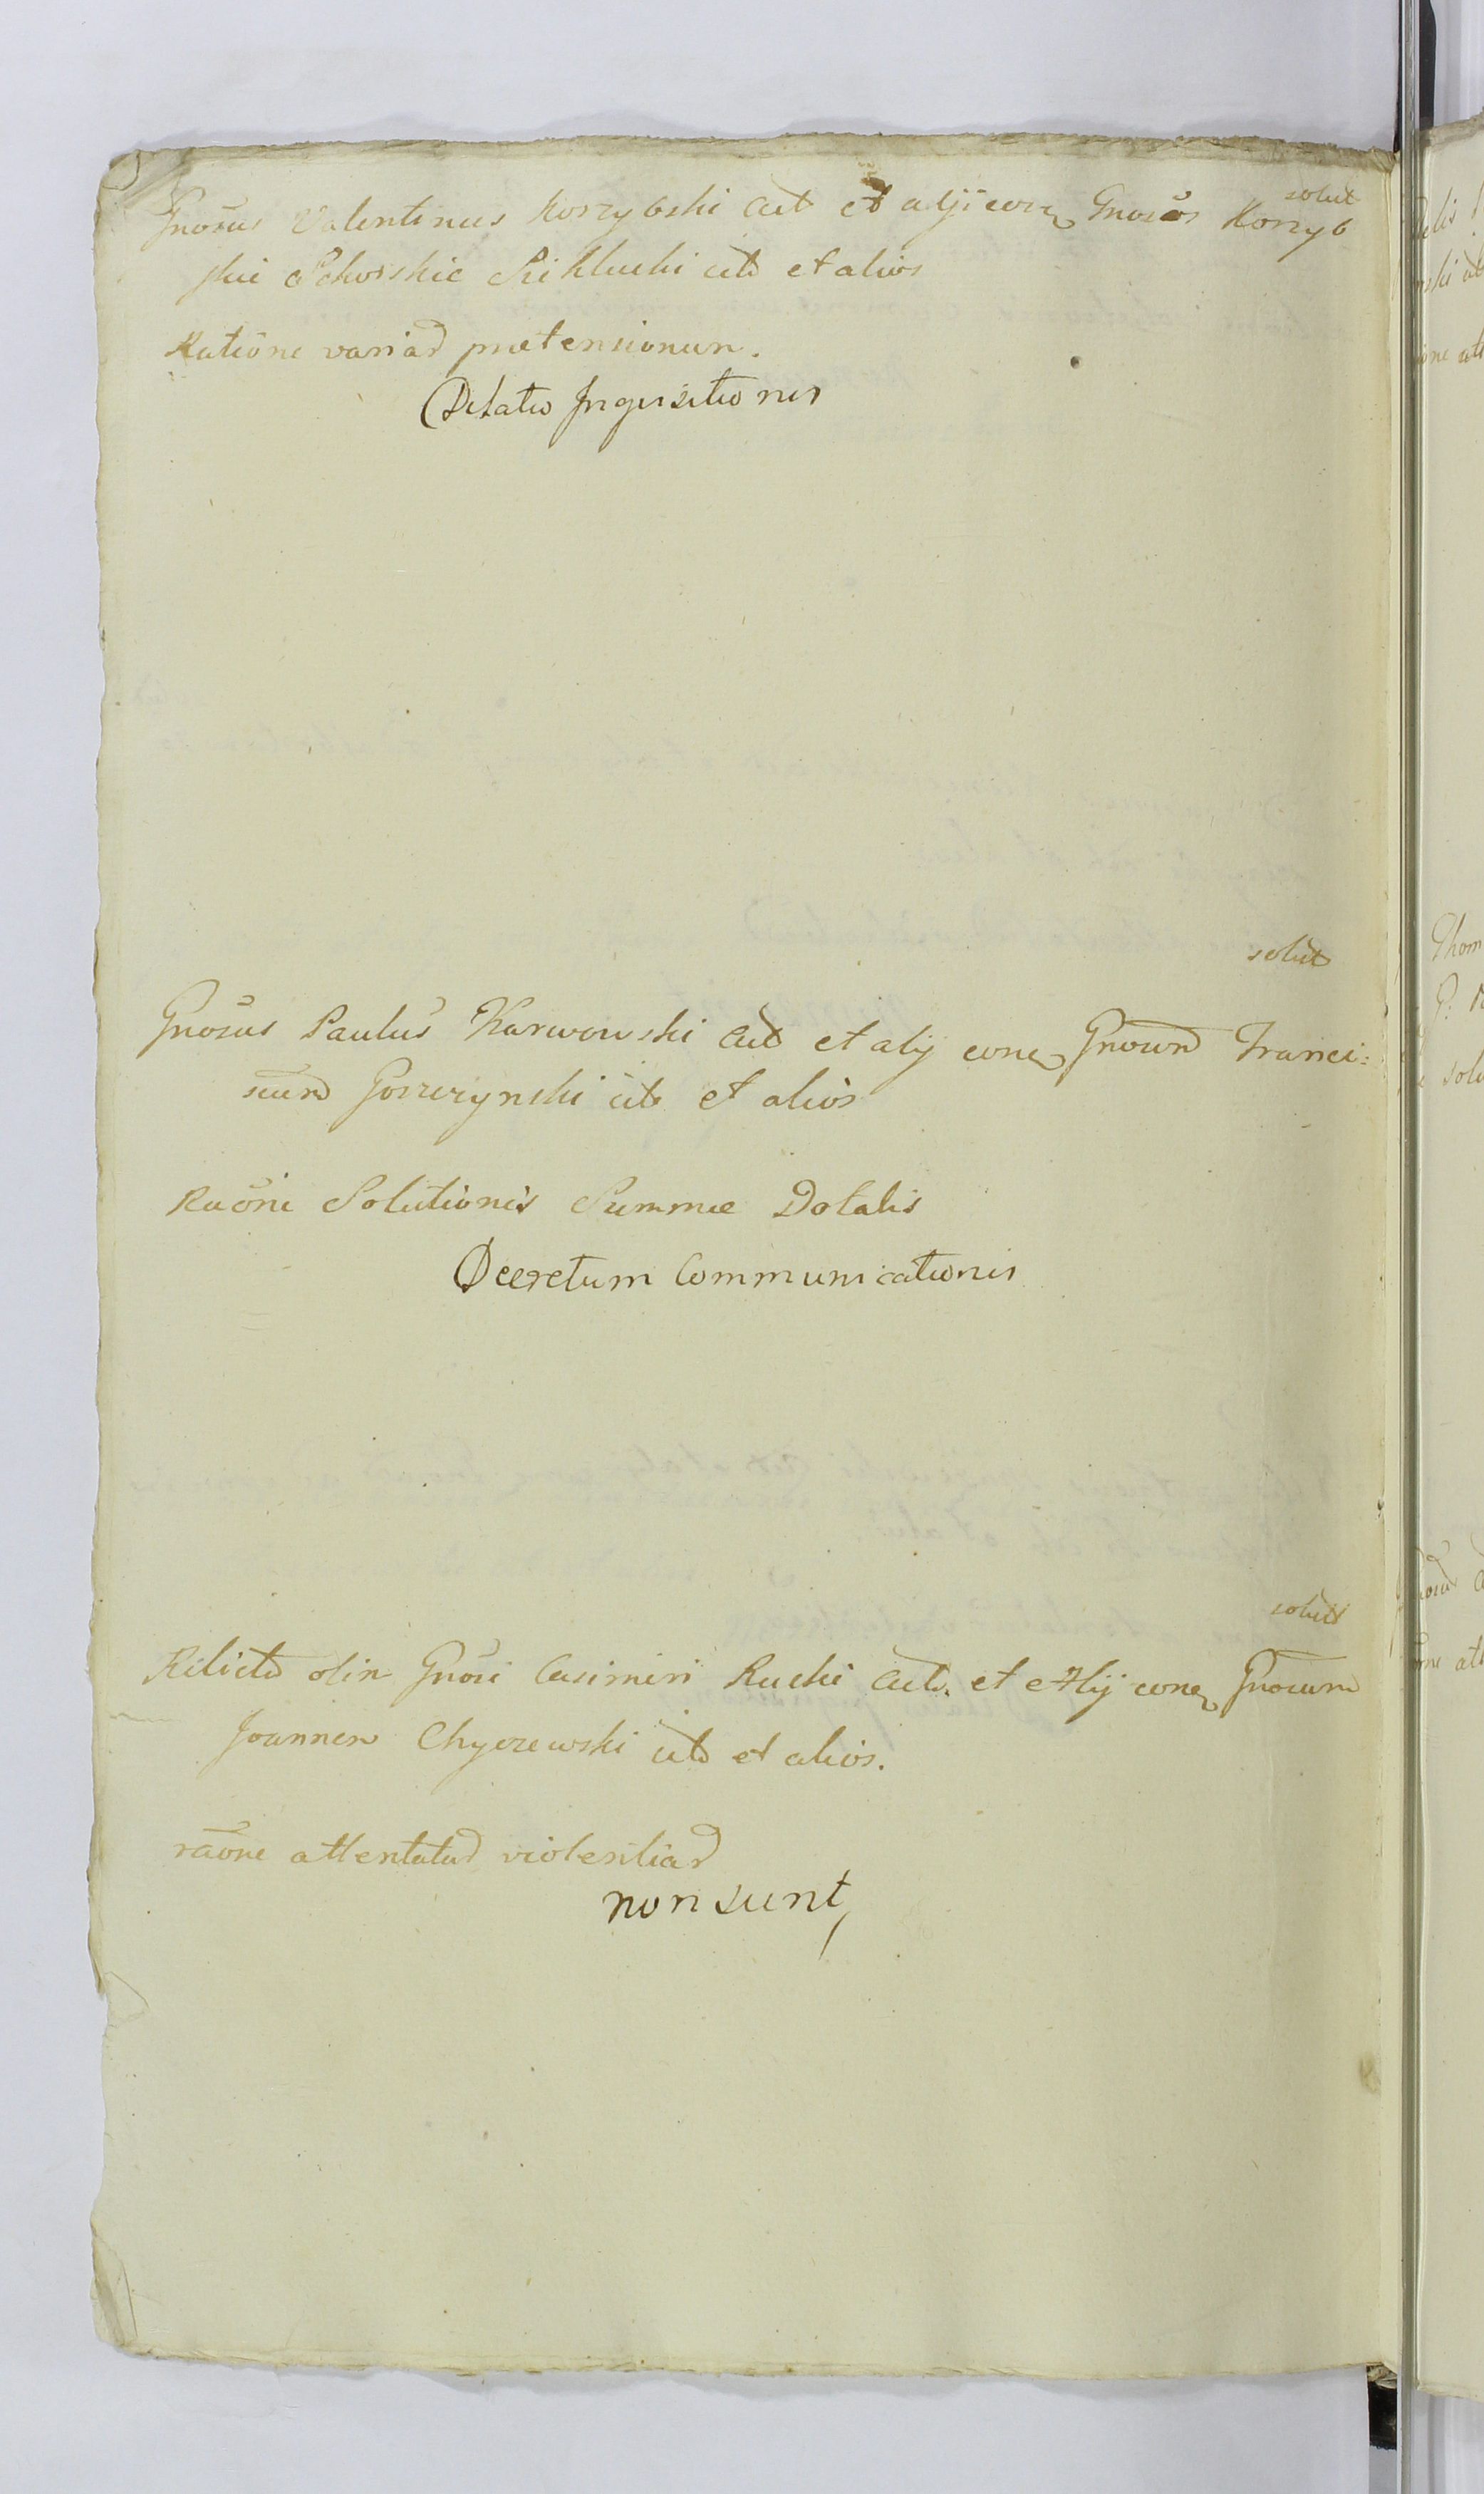 solut
Gnosus Valentinus Korzybski Act et alij conq Gnosos Korzyb
ski Sikorskie Rikluski cit et alios
Ratione variar pretensionum.
Delatio Inquisitionis
solut
Gnosus Paulus Karwowski Act et alij conq Gnosum Franci:
scum Goszczynski cit et alios
Raone Solutionis Summae Dotalis
Decretum Communicationis
solut
Relicta olim Gnosi Casimiri Rucki Act. et Alij conq Gnosum
Joannem Chyczewski cit et alios.
raone attentatar violentiar
non sunt